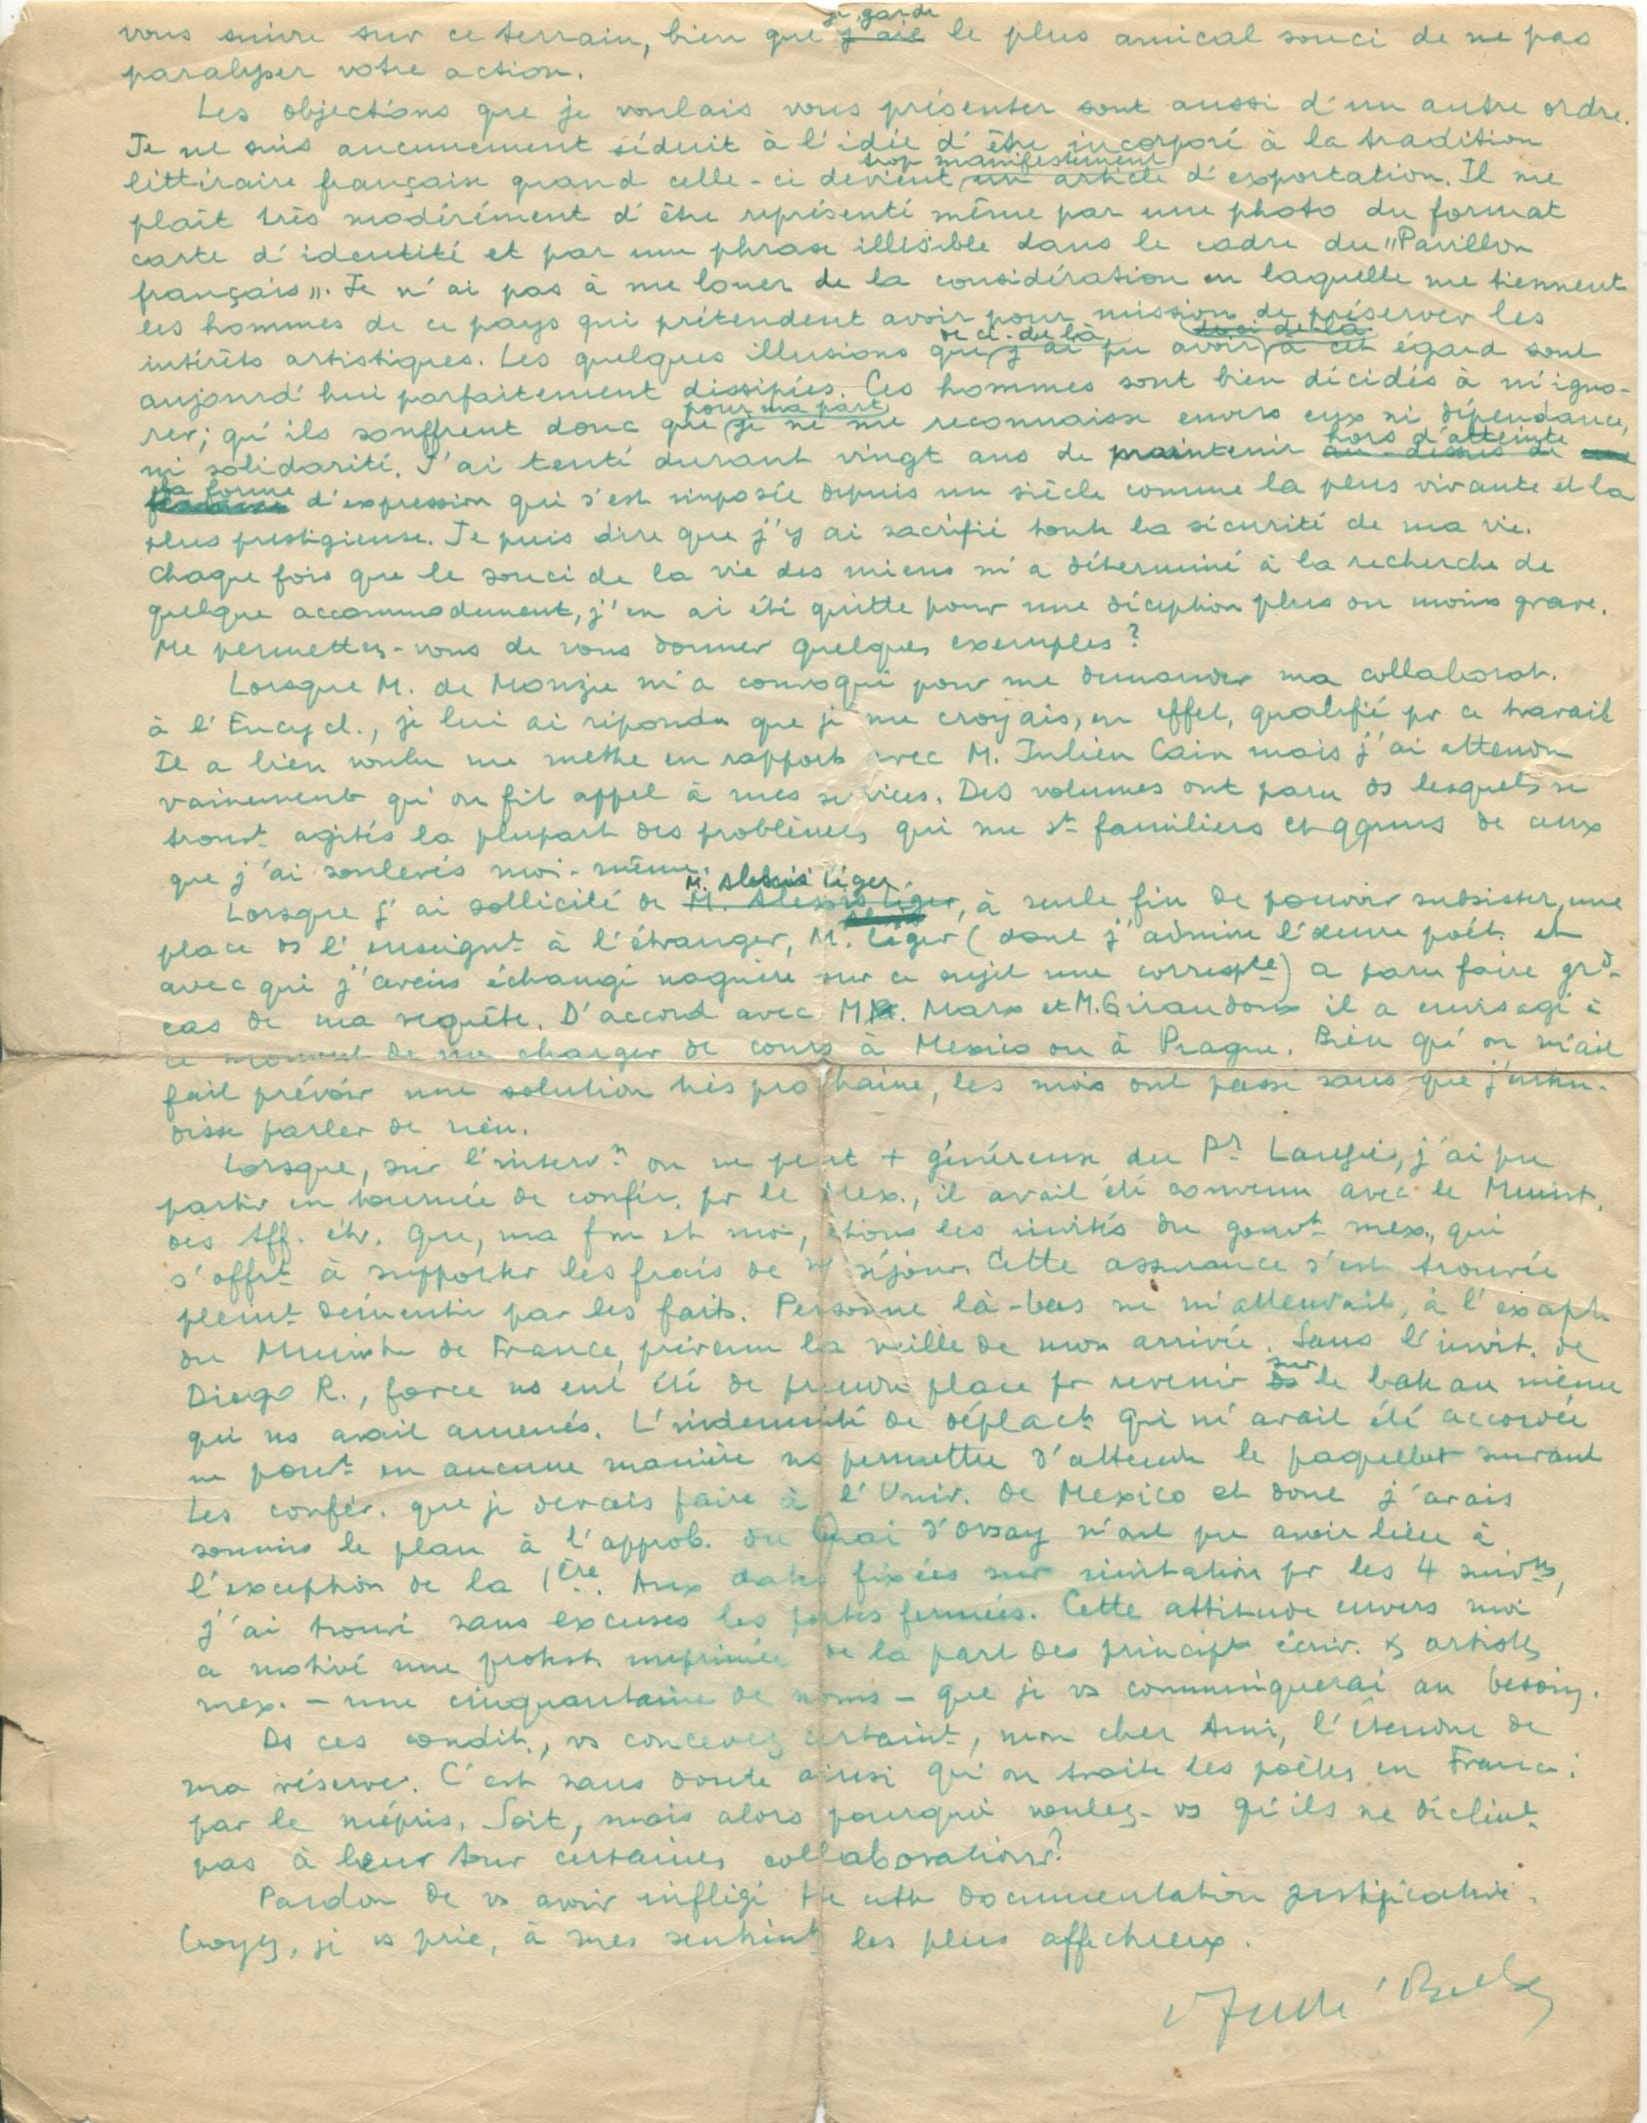 je garde
vous suivre sur ce terrain, bien que j'aie le plus amical souci de ne pas
paralyser votre action.
Les objections que je voulais vous présenter sont aussi d'un autre ordre.
Je ne suis aucunement séduit à l'idée d'être incorporé à la tradition
trop manifestement
littéraire française quand celle-ci devient un article d'exportation. Il me
plaît très modérément d'être représenté même par une photo du format
carte d'identité et par une phrase illisible dans le cadre du "Pavillon
français". Je n'ai pas à me louer de la considération en laquelle me tiennent
les hommes de ce pays qui prétendent avoir pour mission de préserver les
de ci-de là, de ci de là
intérêts artistiques. Les quelques illusions que j'ai pu avoir à cet égard sont
aujourd'hui parfaitement dissipées. Ces hommes sont bien décidés à m'igno-
pour ma part
rer; qu'ils souffrent donc que je ne me reconnaisse envers eux ni dépendance,
hors d'atteinte
ni solidarité. J'ai tenté durant vingt ans de maintenir au-dessus de
la forme
d'expression qui s'est imposée depuis un siècle comme la plus vivante et la
plus prestigieuse. Je puis dire que j'y ai sacrifié toute la sécurité de ma vie.
Chaque fois que le souci de la vie des miens m'a déterminé à la recherche de
quelque accommodement, j'en ai été quitte pour une déception plus ou moins grave.
Me permettez-vous de vous donner quelques exemples?
Lorsque M. de Monzie m'a convoqué pour me demander ma collaborat.
à l'Encycl., je lui ai répondu que je me croyais, en effet, qualifié pr ce travail
Il a bien voulu me mettre en rapports avec M. Julien Cain mais j'ai attendu
vainement qu'on fît appel à mes services. Des volumes ont paru ds lesquels se
trouvt agités la plupart des problèmes qui me st familiers et qques uns de ceux
que j'ai soulevés moi-même.
M. Alexis Léger
Lorsque j'ai sollicité de M. Alexis Léger, à seule fin de pouvoir subsister, une
place ds l'enseignt à l'étranger, M. Léger (dont j'admire l'œuvre poét. et
avec qui j'avais échangé naguère sur ce sujet une correspce) a paru faire grd
cas de ma requête. D'accord avec M. Marx et M. Giraudoux il a envisagé à
ce moment de me charger de cours à Mexico ou à Prague. Bien qu'on m'ait
fait prévoir une solution très prochaine, les mois ont passé sans que j'enten-
disse parler de rien.
Lorsque, sur l'intervn on ne peut + généreuse du Pr Laugier, j'ai pu
partir en tournée de confér. pr le Mex., il avait été convenu avec le Minist.
des Aff. étr. que, ma fm et moi, étions les invités du gouvt mex., qui
s'offrt à supporter les frais de n/ séjour. Cette assurance s'est trouvée
pleint démentie par les faits. Personne là-bas ne m'attendait, à l'except.
du Ministre de France, prévenu la veille de mon arrivée. Sans l'invit. de
sur
Diego R., force ns eut été de prendre place pr revenir ds le bateau même
qui ns avait amenés. L'indemnité de déplact qui m'avait été accordée
ne pouvt en aucune manière ns permettre d'attendre le paquebot suivant
Les confér. que je devais faire à l'Univ. de Mexico et dont j'avais
soumis le plan à l'approb. du Quai d'Orsay n'ont pu avoir lieu à
l'exception de la 1ère. Aux dates fixées sur invitation pr les 4 suivtes,
j'ai trouvé sans excuses les portes fermées. Cette attitude envers moi
a motivé une protest. imprimée de la part des principx écriv. & artistes
mex. - une cinquantaine de noms - que je vs communiquerai au besoin.
Ds ces condit., vs concevez certaint, mon cher Ami, l'étendue de
ma réserve. C'est sans doute ainsi qu'on traite les poètes en France:
par le mépris. Soit, mais alors pourquoi voulez-vs qu'ils ne déclint
pas à leur tour certaines collaborations?
Pardon de vs avoir infligé tte cette documentation justificative.
Croyez, je vs prie, à mes sentimts les plus affectueux.
André Breton